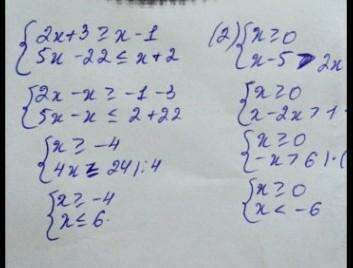 {2x+3 ≥ x-1
{5x-22 ≤ x+2
{2x-x ≥ -1-3
{5x-x ≤ 2+22
{x ≥ -4
{4x ≤ 24|:4
{x ≥ -4
{x ≤ 6.
(2) {x ≥ 0
{x-5 > 2x
{x ≥ 0
{x-2x > 1
{x ≥ 0
{-x > 6|·(
{x ≥ 0
{x < -6